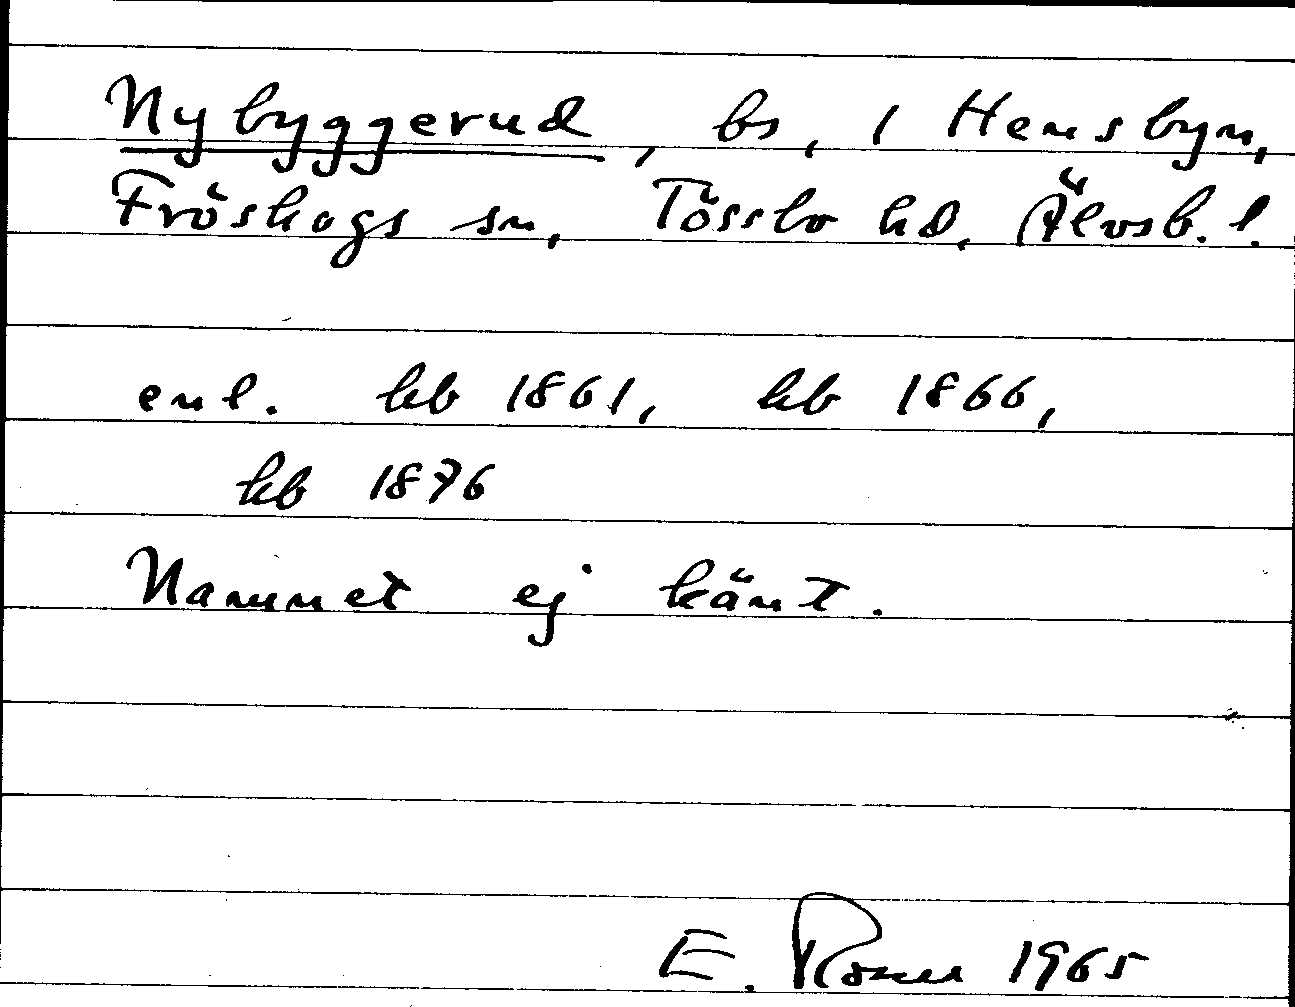 Nybyggerud, bs, i Hensbyn,
Fröskogs sn, Tössbo hd, Älvsb. l.
enl. hb 1861, hb 1866,
hb 1876
Namnet ej känt.
E. 1965